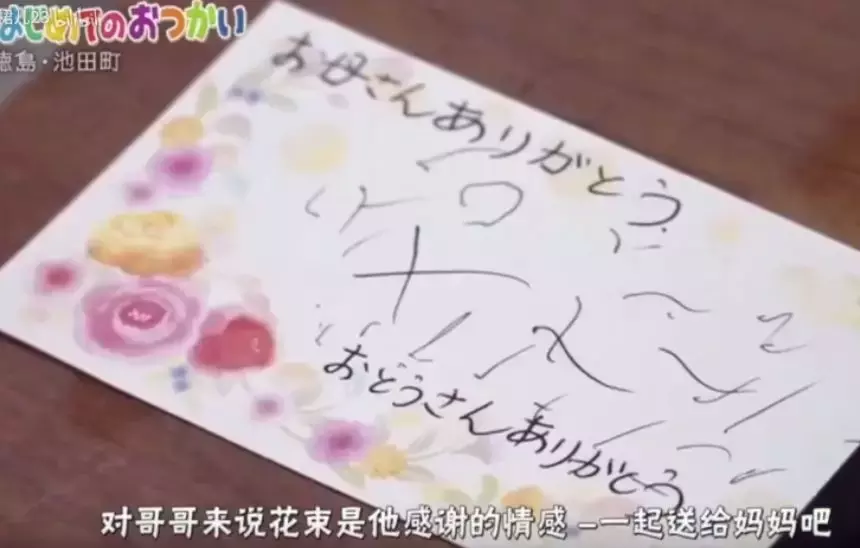 はじめてのおつかい
徳島・池田町
お母さんありがとう
おどうさんありがとう
对哥哥来说花束是他感谢的情感 –一起送给妈妈吧